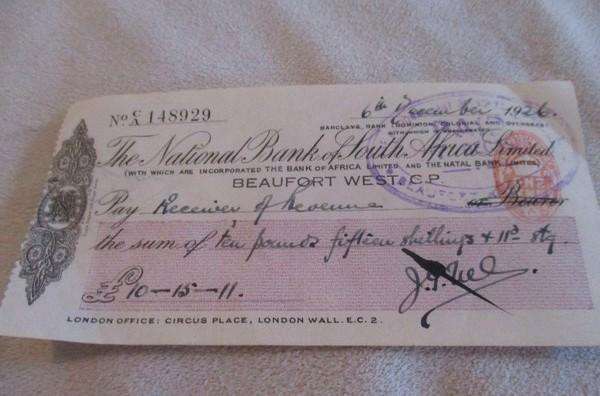 6th December 1926.
No C/A 148929
BARCLAYS BANK (DOMINION, COLONIAL AND OVERSEAS)
WITH WHICH IS AMALGAMATED
The National Bank of South Africa Limited
(WITH WHICH ARE INCORPORATED THE BANK OF AFRICA LIMITED, AND THE NATAL BANK LIMITED)
BEAUFORT WEST, C.P.
Pay Receiver of Revenue or Bearer
the sum of ten pounds fifteen shillings + 11d stg.
£ 10-15-11.
LONDON OFFICE: CIRCUS PLACE, LONDON WALL. E.C. 2.